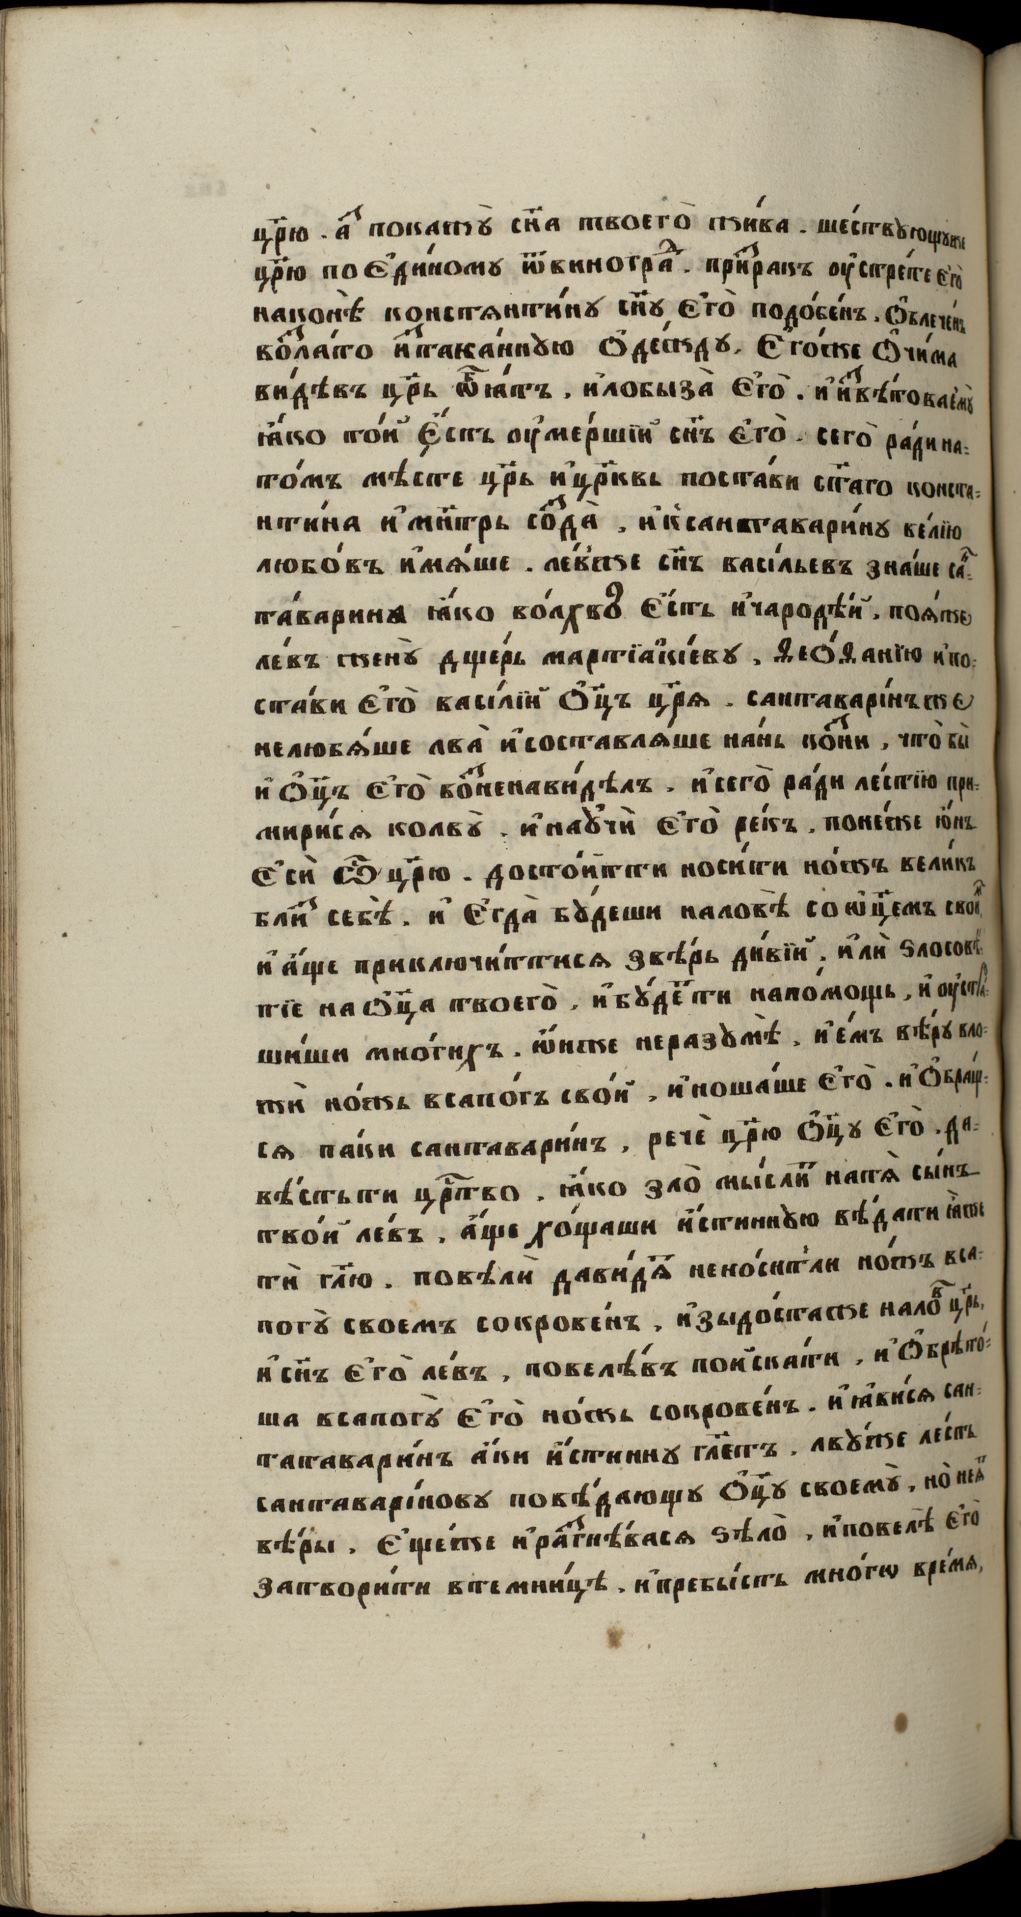 цр҃ю . аⷥ҇ покажꙋ̀ сн҃а твоего̀ жи́ва . ше́ствꙋющꙋже
цр҃ю по є҆ди́номꙋ ѿ виногра́ⷣ . при́ⷥракъ ᲂу҆стрете є҆го̀
наконѣ̀ констѧнти́нꙋ сн҃ꙋ є҆го̀ подо́бенъ . ѻ҆блече́нъ
воⷥ҇ла́то и҆ⷥтка́ннꙋю ѻ҆де́ждꙋ , є҆го́же ѻ҆чи́ма
ви́дѣвъ цр҃ь ѿꙗ́тъ , и҆ лобыза̀ є҆го̀ . и҆ и҆ⷥвѣ́товаемꙋ̀
ꙗ҆́ко то́й є҆́сть ᲂу҆ме́ршїй сн҃ъ є҆го̀ . сего̀ ра́ди на-
то́мъ мѣ́сте цр҃ь и҆ цр҃квь поста́ви ст҃а́го конста-
нти́на и҆ мн҃трь соⷥ҇да̀ , и҆ к санⷮтавари́нꙋ ве́лїю
любо́въ и҆мѧ́ше . ле́вже сн҃ъ васі́льевъ зна́ше саⷩ-
та́варина ꙗ҆́ко волхвъ є҆́сть и҆ чародѣ́й , поѧ́тже
ле́въ женꙋ̀ дще́рь мартїа́кїевꙋ , ѳеоѳанїю и҆ по-
ста́ви є҆го̀ васі́лїй ѻ҆ц҃ъ цр҃ѧ . сантаварі́нъже
нелюбѧ́ше лва̀ и҆ составлѧ́ше на́нь ко́ⷥни , что̀бы̀
и҆ ѻ҆ц҃ъ є҆го̀ воⷥ҇ненави́дѣлъ . и҆ сего̀ ра́ди ле́стїю при-
мири́сѧ ко лвꙋ̀ . и҆ наꙋ҆чѝ є҆го̀ ре́къ , поне́же ю҆́нъ
є҆сѝ ѽ цр҃ю . досто́йтти носи́ти но́жъ вели́къ
блиⷥ҇ себѣ̀ . и҆ є҆гда̀ бꙋ́деши наловѣ̀ со ѻ҆ц҃е́мъ свои́ⷨ
и҆ а҆́ще приключи́ттисѧ звѣ́рь ди́вїй , и҆лѝ ѕлосовѣ́-
тїе на ѻ҆ц҃а твоего̀ , и҆ бꙋ́деⷮти напо́мощь , и҆ ᲂу҆стра-
ши́ши мно́гихъ . ѻ҆́нже неразꙋмѣ̀ , и҆ е́мъ вѣ́рꙋ вло-
жѝ но́жь в сапо́гъ сво́й , и҆ ноша́ше є҆го̀ . и҆ ѻ҆бра́щ-
сѧ па́ки сантавари́нъ , речѐ цр҃ю ѻ҆ц҃ꙋ є҆го̀ . да-
вѣ́стьти црⷭ҇тво . ꙗ҆́ко зло̀ мы́слиⷮ натѧ̀ сы́нъ
тво́й ле́въ , а҆́ще хо́щаши и҆́стиннꙋю вѣ́дати ꙗ҆́же
тѝ гл҃ю . повѣлѝ давидѧⷮ҇ неноситли но́жъ вса-
погꙋ̀ своемъ сокрове́нъ , и҆зыдо́стаже нало́ⷡ цр҃ь ,
и҆ сн҃ъ є҆го̀ ле́въ , повелѣ́въ пои҆ска́ти , и҆ ѻ҆брѣто́-
ша всапогꙋ̀ є҆го̀ но́жь сокрове́нъ . и҆ ꙗ҆ви́сѧ сан-
татавари́нъ а҆́ки и҆́стиннꙋ гл҃етъ . лвꙋ́же ле́сть
сантаварі́новꙋ повѣ́дающꙋ ѻ҆ц҃ꙋ своемꙋ̀ , но̀ неꙗ҆ⷮ
вѣ́ры . є҆ще́же и҆ раⷥ҇гнѣ́васѧ ѕѣло̀ , и҆ повелѣ̀ є҆го̀
затвори́ти в темни́цѣ . и҆ пребы́сть мно́гѡ вре́мѧ ,